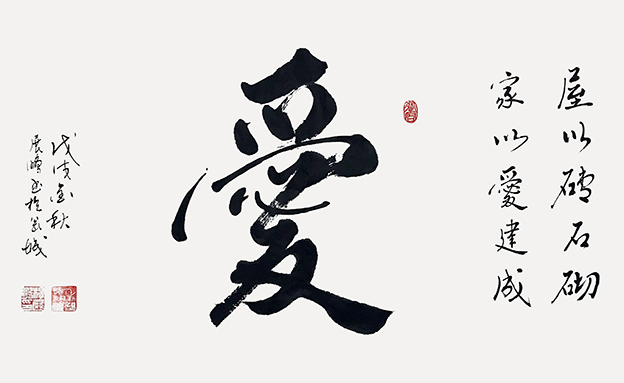 屋以磚石砌
家以愛建成
愛
戊戌金秋
展鵬书於城